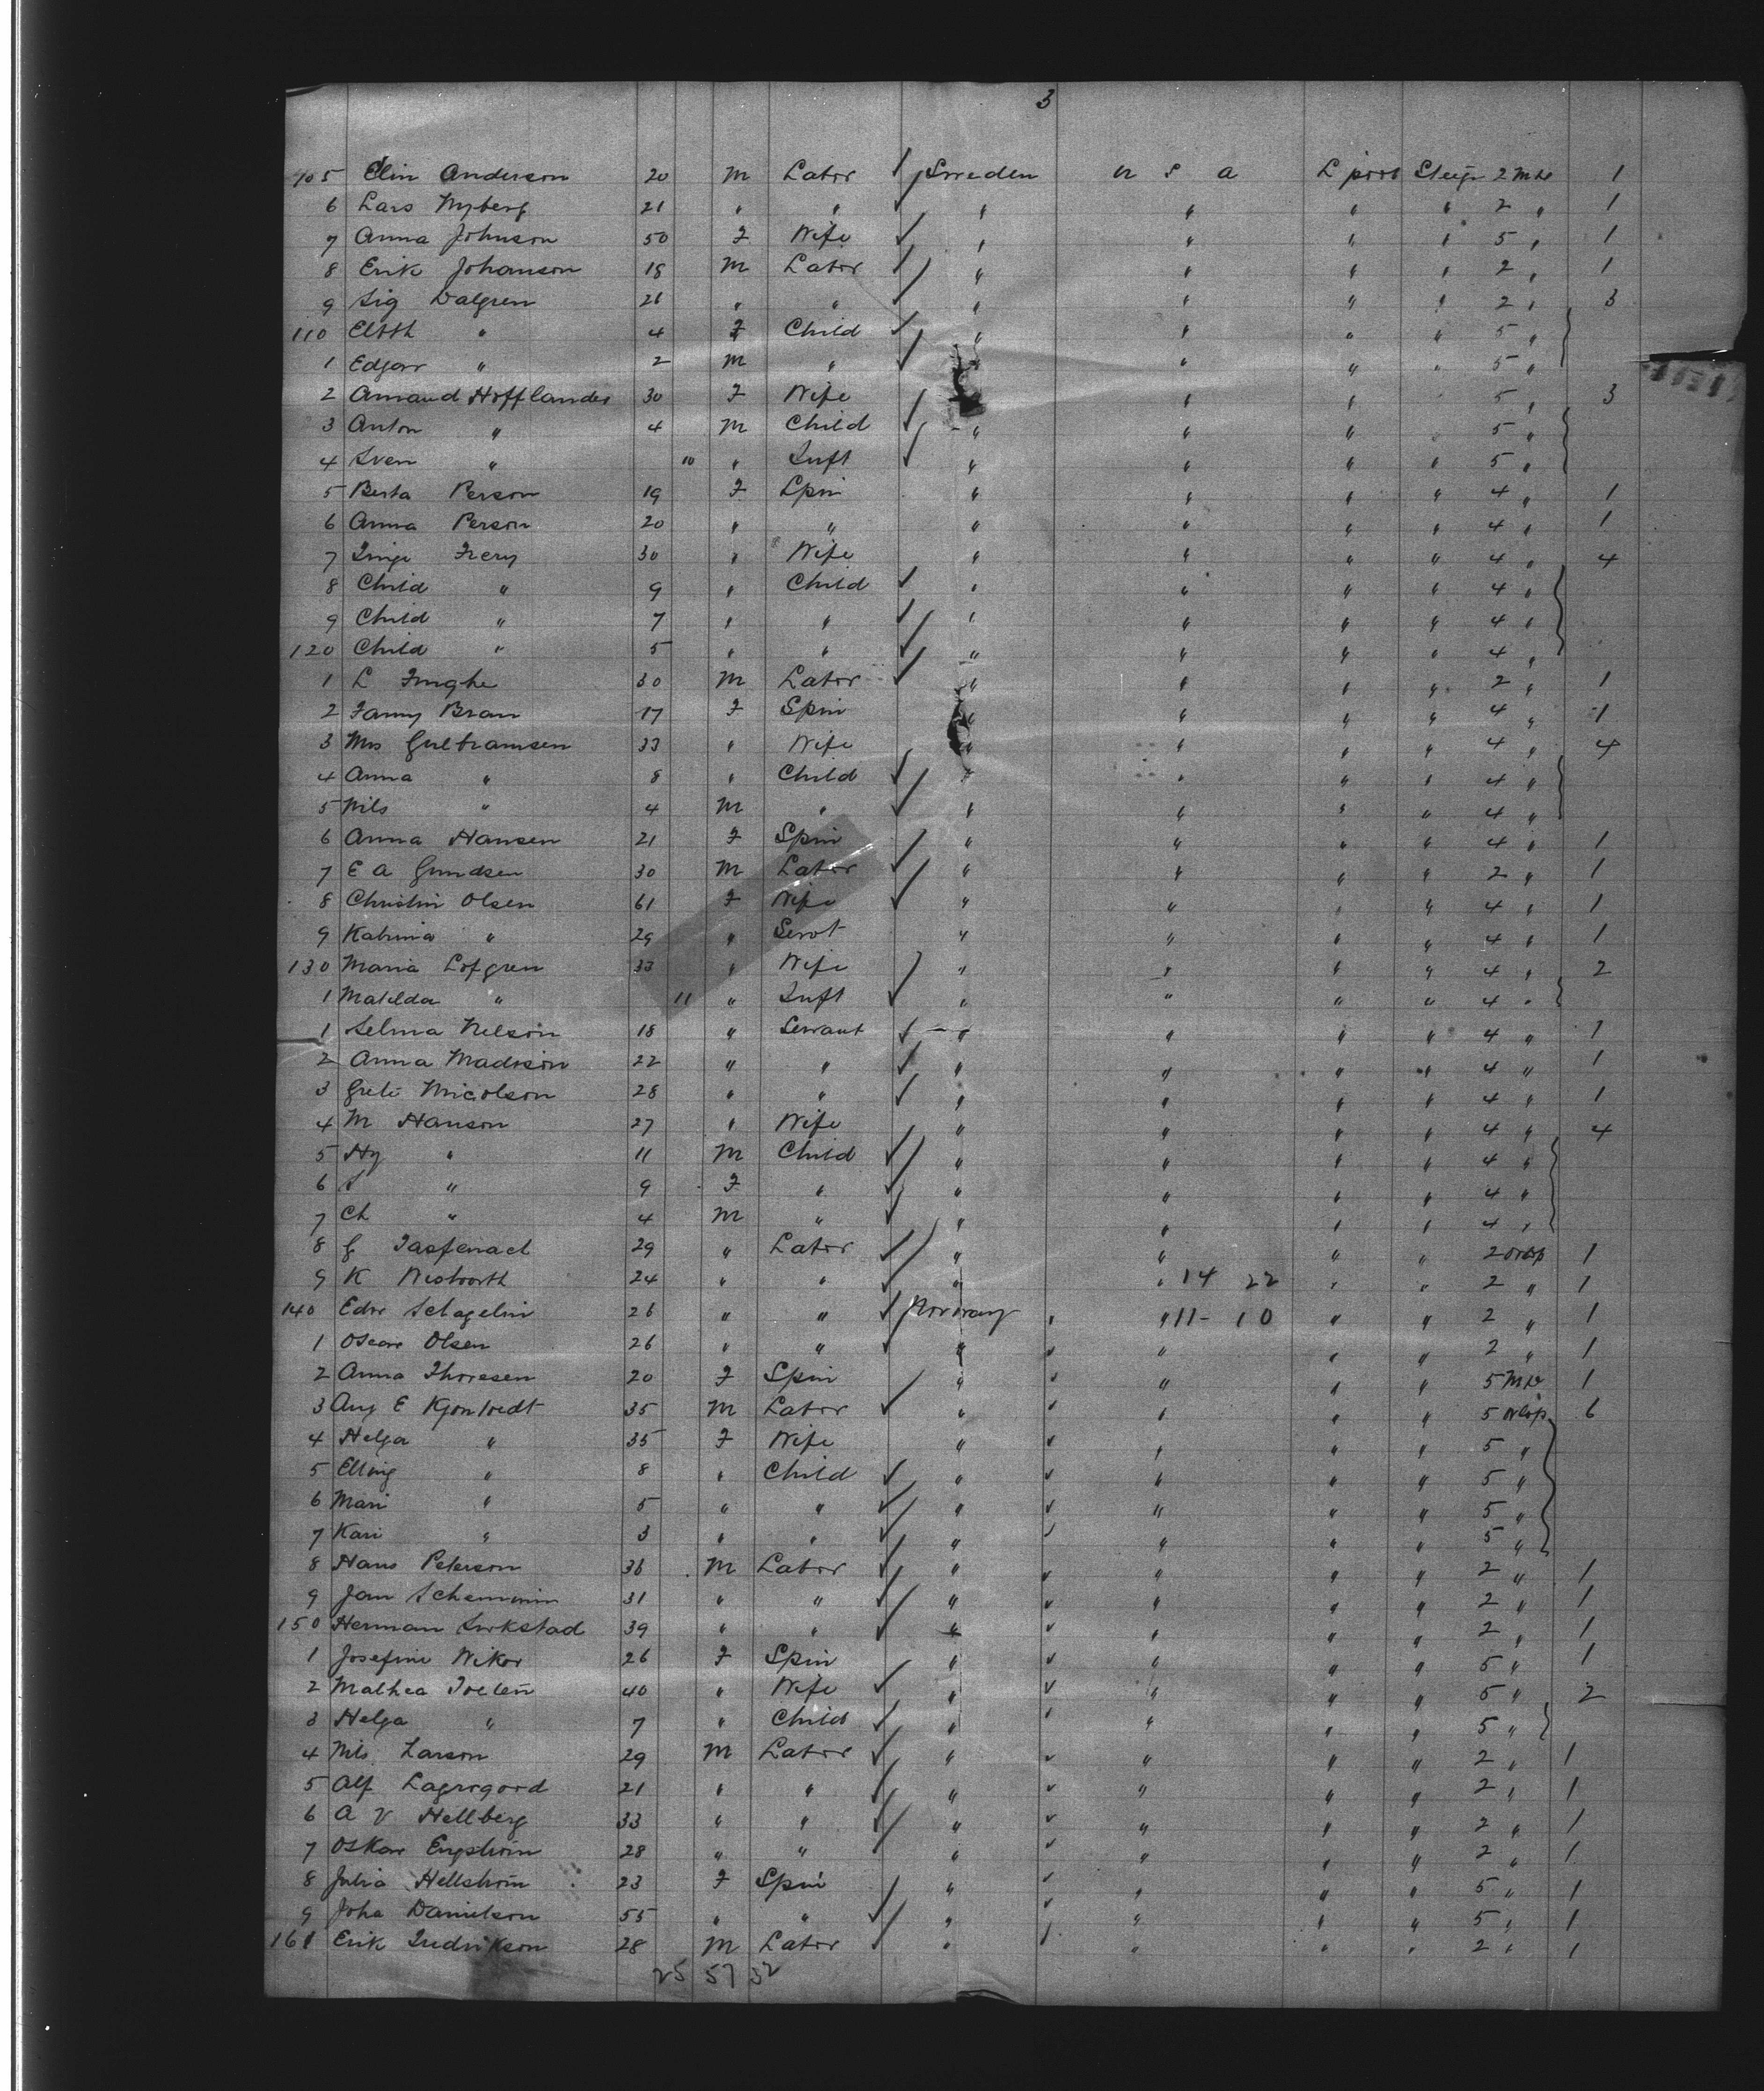 3
105 Elin Anderson 20 M Labor Sweden U S A L pool Steege 2 Mte 1
6 Lars Nyberg 21 " " " " " " 2 " 1
7 Anna Johnson 50 F Wife " " " " 5 " 1
8 Erik Johanson 18 M Labor " " " " 2 " 1
9 Sig Dalgren 26 " " " " " " 2 " 3
110 Elbth " 4 F Child " " " " 5 "
1 Edgar " 2 M " " " " " 5 "
2 Amand Hofflander 30 F Wife " " 5 " 3
3 Anton " 4 M Child " " " 5 "
4 Sven " 10 " Inft " " " " 5 "
5 Berta Person 19 F Spin " " " " 4 " 1
6 Anna Person 20 " " " " " " 4 " 1
7 Inge Frery 30 " Wife " " " " 4 " 4
8 Child " 9 " Child " " " " 4 "
9 Child " 7 " " " " " " 4 "
120 Child " 5 " " " " " " 4 "
1 L 30 M Labor " " " " 2 " 1
2 Fanny Bran 17 F Spin " " " " 4 " 1
3 Mrs Gulbramsen 33 " Wife " " " " 4 " 4
4 Anna " 8 " Child " " " " 4 "
5 Nils " 4 M " " " " " 4 "
6 Anna Hansen 21 F Spin " " " " 4 " 1
7 E A Gundsen 30 M Labor " " " " 2 " 1
8 Christin Olsen 61 F Wife " " " " 4 " 1
9 Katrina " 29 " Servt " " " " 4 " 1
130 Maria Lofgren 33 " Wife " " " " 4 " 2
1 Matilda " 11 " Inft " " " " 4 "
1 Selma Nelson 18 " Servant " " " " 4 " 1
2 Anna Madison 22 " " " " " " 4 " 1
3 Grete Nicolson 28 " " " " " " 4 " 1
4 M Hanson 27 " Wife " " " " 4 " 4
5 Hy " 11 M Child " " " " 4 "
6 S " 9 F " " " " " 4 "
7 Ch " 4 M " " " " " 4 "
8 G 29 " Labor " " " " 2 Orlop 1
9 K 24 " " " " 14 22 " " 2 " 1
140 Edw 26 " " Norway " " 11 - 10 " " 2 " 1
1 Oscar Olsen 26 " " " " " " 2 " 1
2 Anna Thoresen 20 F Spin " " " " 5 Mte 1
3 Aug E 35 M Labor " " " " 5 Orlop 6
4 Helga " 35 F Wife " " " " 5 "
5 Elling " 8 " Child " " " " 5 "
6 Mari " 5 " " " " " " 5 "
7 Kari " 3 " " " " " " 5 "
8 Hans Peterson 36 M Labor " " " " 2 " 1
9 Jam 31 " " " " " " 2 " 1
150 Herman 39 " " " " " " 2 " 1
1 Josefine Wikor 26 F Spin " " " " 5 " 1
2 Mathea 40 " Wife " " " " 5 " 2
3 Helga " 7 " Child " " " " 5 "
4 Nils Larson 29 M Labor " " " " 2 " 1
5 Alf Lagergord 21 " " " " " " 2 " 1
6 A V Hellberg 33 " " " " " " 2 " 1
7 Oskar Engstrom 28 " " " " " " 2 " 1
8 Julia Hellstrom 23 F Spin " " " " 5 " 1
9 Joha Danielson 55 " " " " " " 5 " 1
161 Erik Fredrikson 28 M Labor " " " " 2 " 1
25 57 32